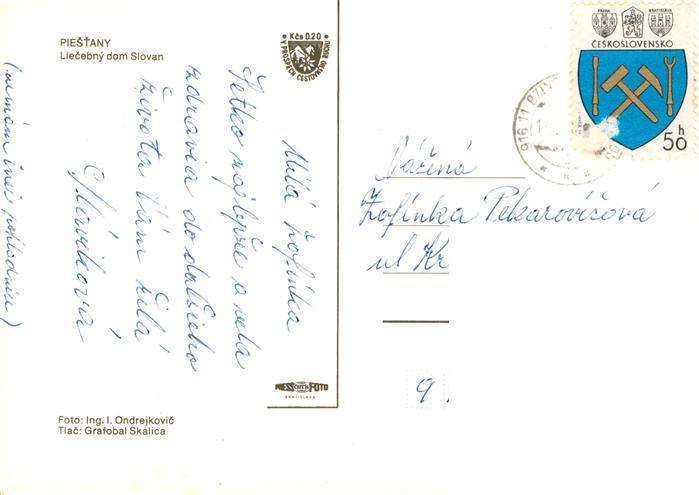 PIEŠŤANY
Liečebný dom Slovan
Kčs 0.20
V PROSPECH CESTOVNÉHO RUCHU
Milá Žofinka
Všetko najlepšie a vela
zdravia do dalšieho
života Vám želá
Slávikova
(nemám inej pohladnice)
PRESSFOTO
BRATISLAVA
Foto: Ing. I. Ondrejkovič
Tlač: Grafobal Skalica
PRAHA
BRATISLAVA
ČESKOSLOVENSKO
50 h
916 11
Vážená
Žofinka Pekarovičová
ul Kr
9.